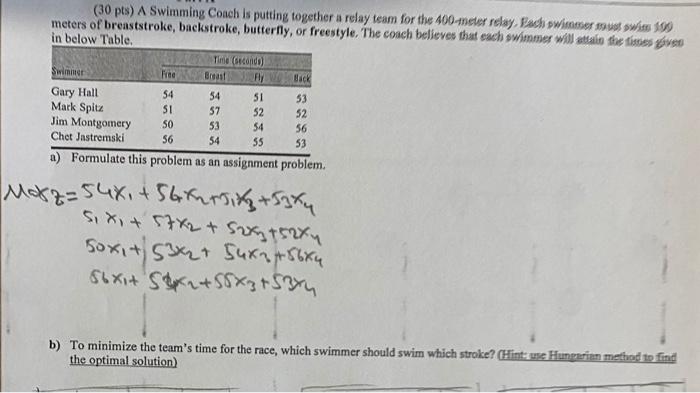 (30 pts) A Swimming Coach is putting together a relay team for the 400-meter relay. Each swimmer must swim 100
meters of breaststroke, backstroke, butterfly, or freestyle. The coach believes that each swimmer will attain the times given
in below Table.
Time (seconds)
Swimmer Free Breast Fly Back
Gary Hall 54 54 51 53
Mark Spitz 51 57 52 52
Jim Montgomery 50 53 54 56
Chet Jastremski 56 54 55 53
a) Formulate this problem as an assignment problem.
Max z = 54x1 + 54x2 + 51x3 + 53x4
51x1 + 57x2 + 52x3 + 52x4
50x1 + 53x2 + 54x3 + 56x4
56x1 + 54x2 + 55x3 + 53x4
b) To minimize the team's time for the race, which swimmer should swim which stroke? (Hint: use Hungarian method to find
the optimal solution)